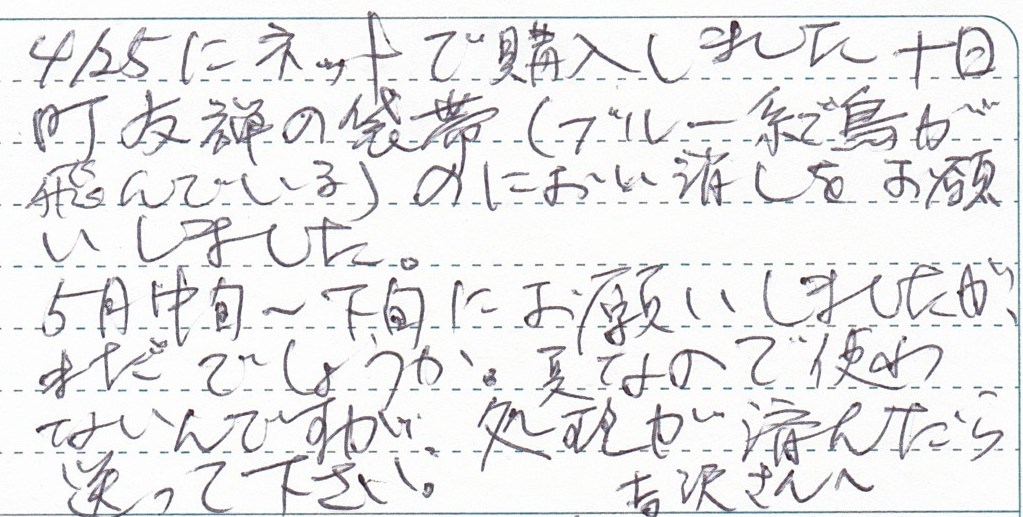 4/25にネットで購入しました十日
町友禅の袋帯(ブルー系で鳥が
飛んでいる)のにおい消しをお願
いしました。
5月中旬~下旬にお願いしましたが、
まだでしょうか。夏なので使わ
ないんですが、処理が済んだら
送って下さい。 吉沢さんへ